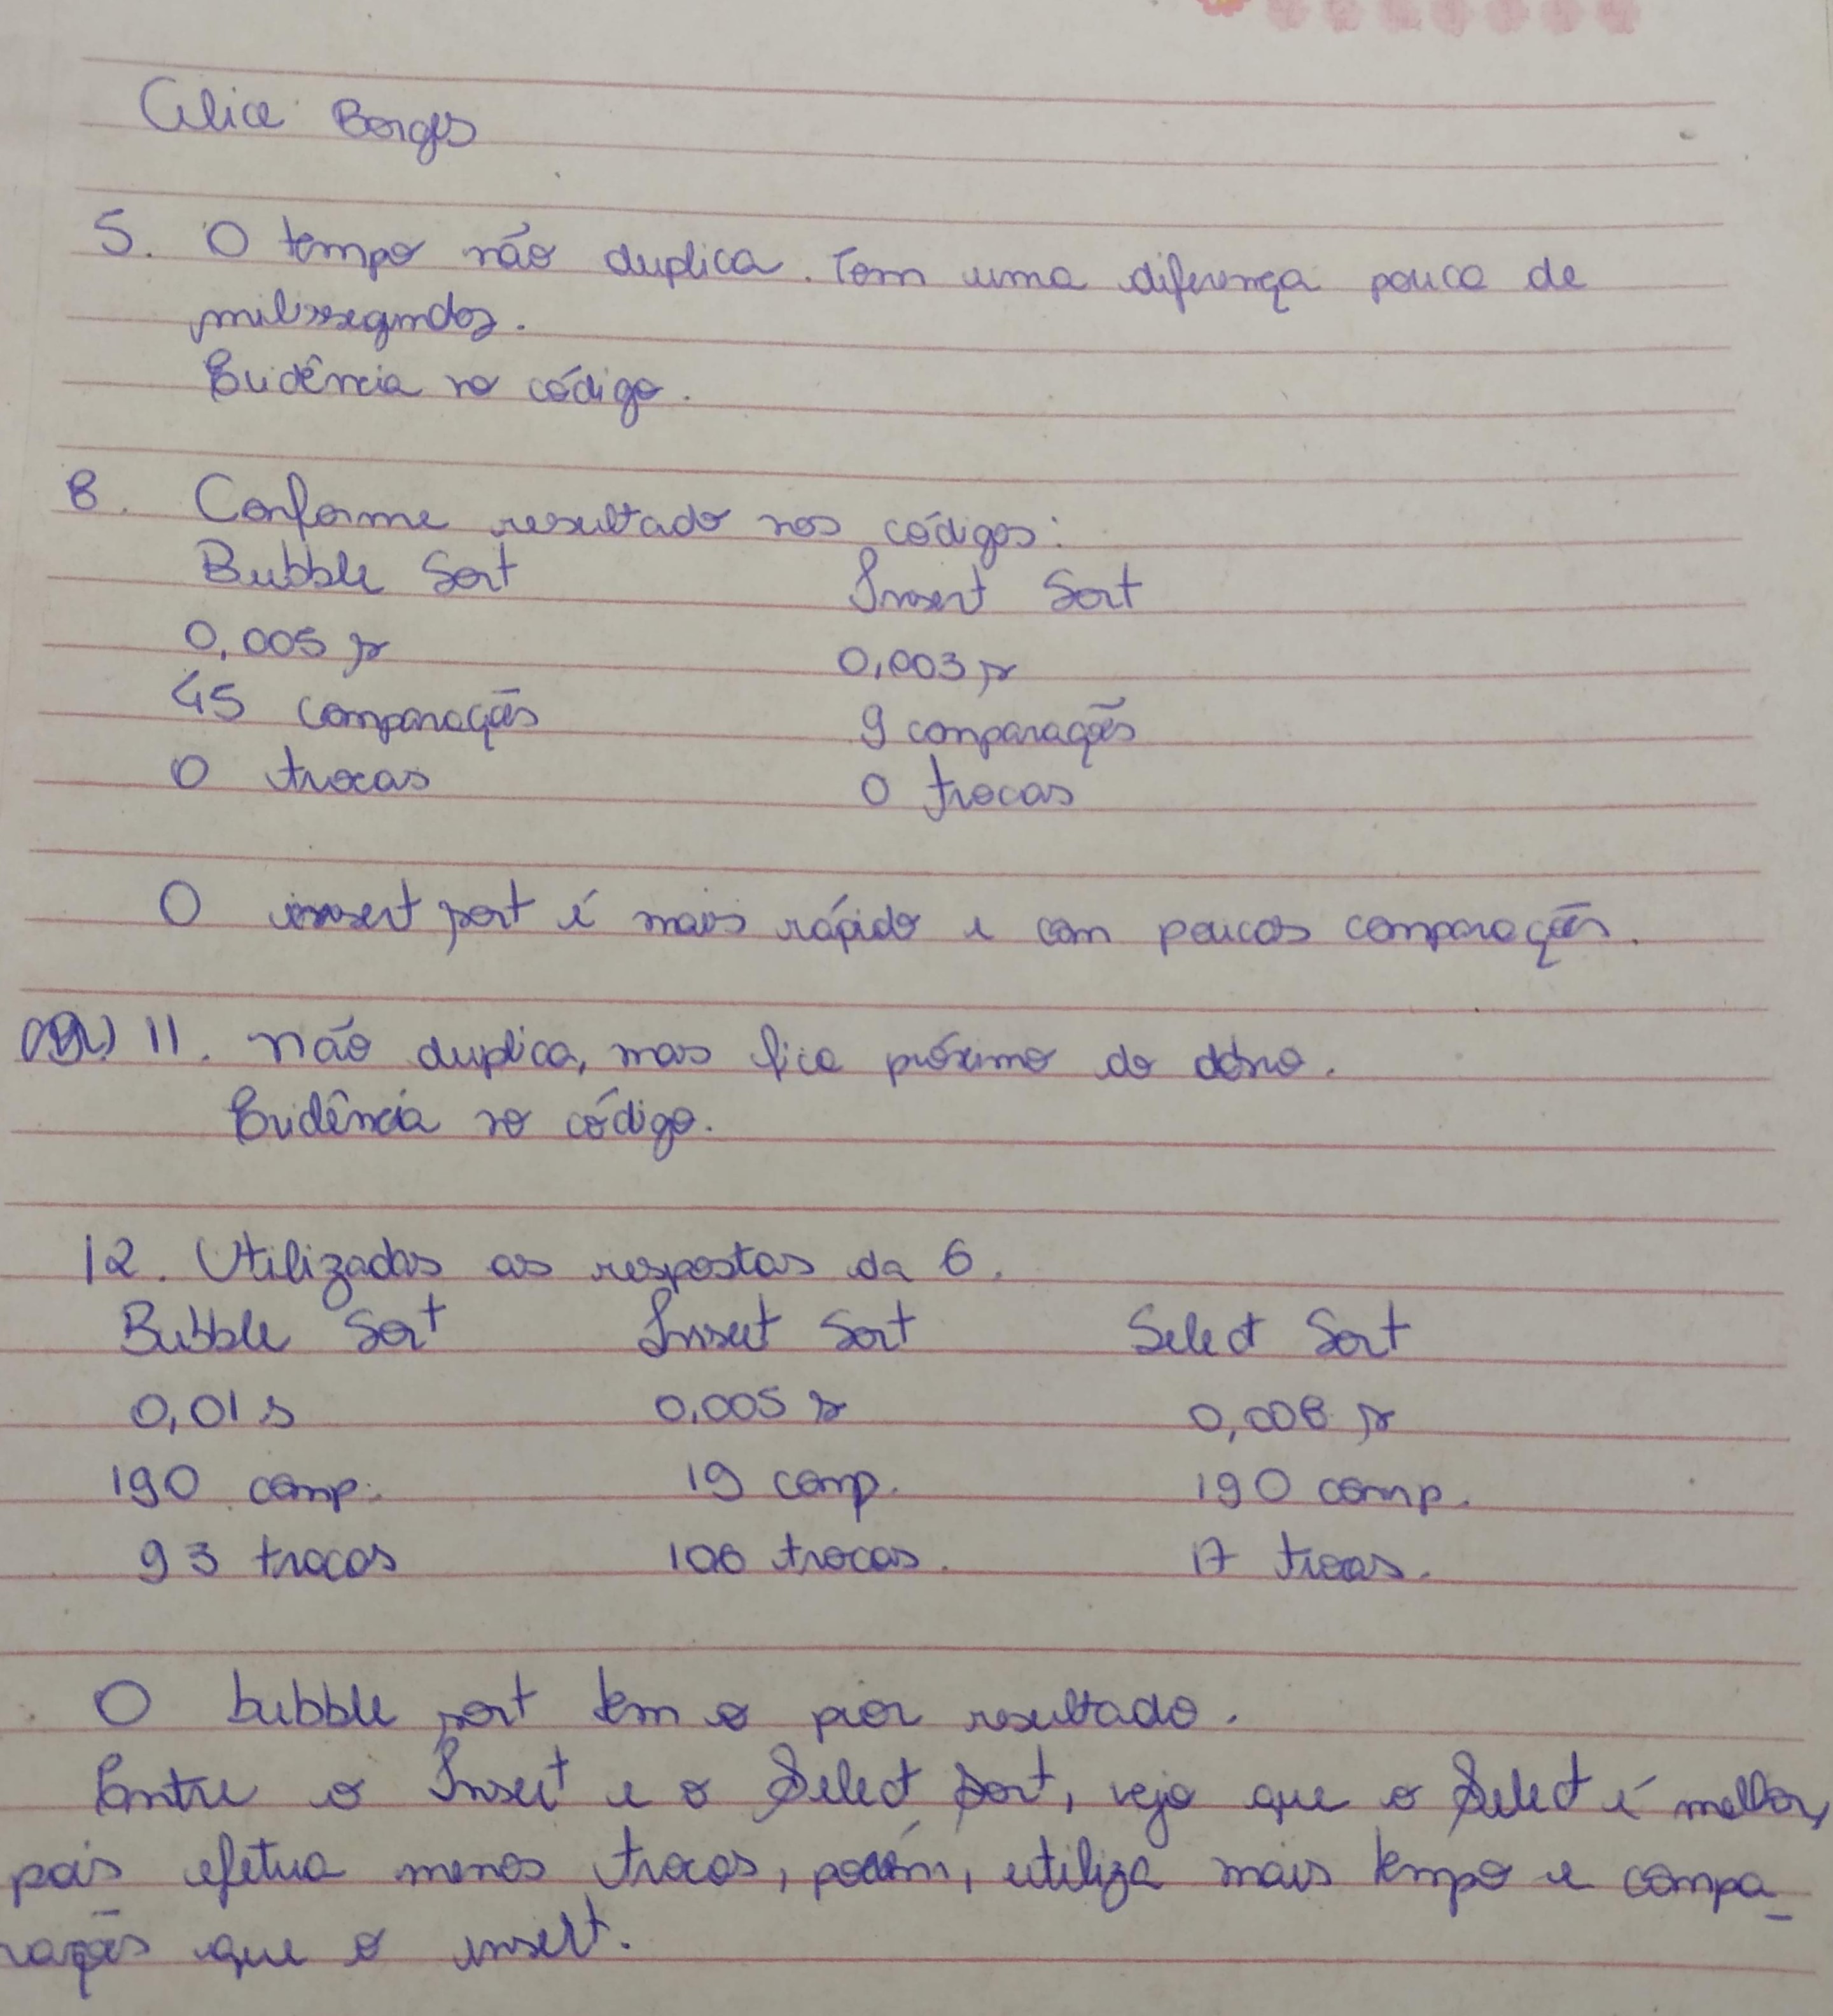 Alice Borges
5. O tempo não duplica. Tem uma diferença pouca de
milissegundos.
Evidência no código.
8. Conforme resultado nos códigos:
Bubble Sort Insert Sort
0,005 s 0,003 s
45 comparações 9 comparações
0 trocas 0 trocas
O insert sort é mais rápido e com poucas comparações.
11. não duplica, mas fica próximo do dobro.
Evidência no código.
12. Utilizadas as respostas da 6.
Bubble Sort Insert Sort Select Sort
0,01 s 0,005 s 0,008 s
190 comp. 19 comp. 190 comp.
93 trocas 106 trocas. 17 trocas.
O bubble sort tem o pior resultado.
Entre o Insert e o Select Sort, vejo que o Select é melhor,
pois efetua menos trocas, porém, utiliza mais tempo e compa_
rações que o insert.